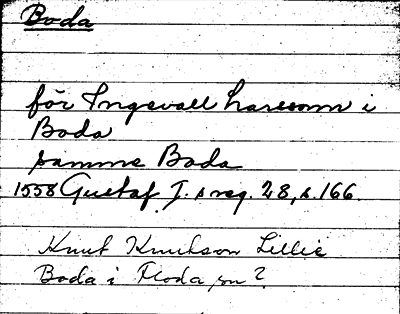 Boda
för Ingevall Larsson i
Boda
samme Boda
1558 Gustaf I:s reg. 28, s. 166.
Knut Knutsson Lillie
Boda i Floda sn?